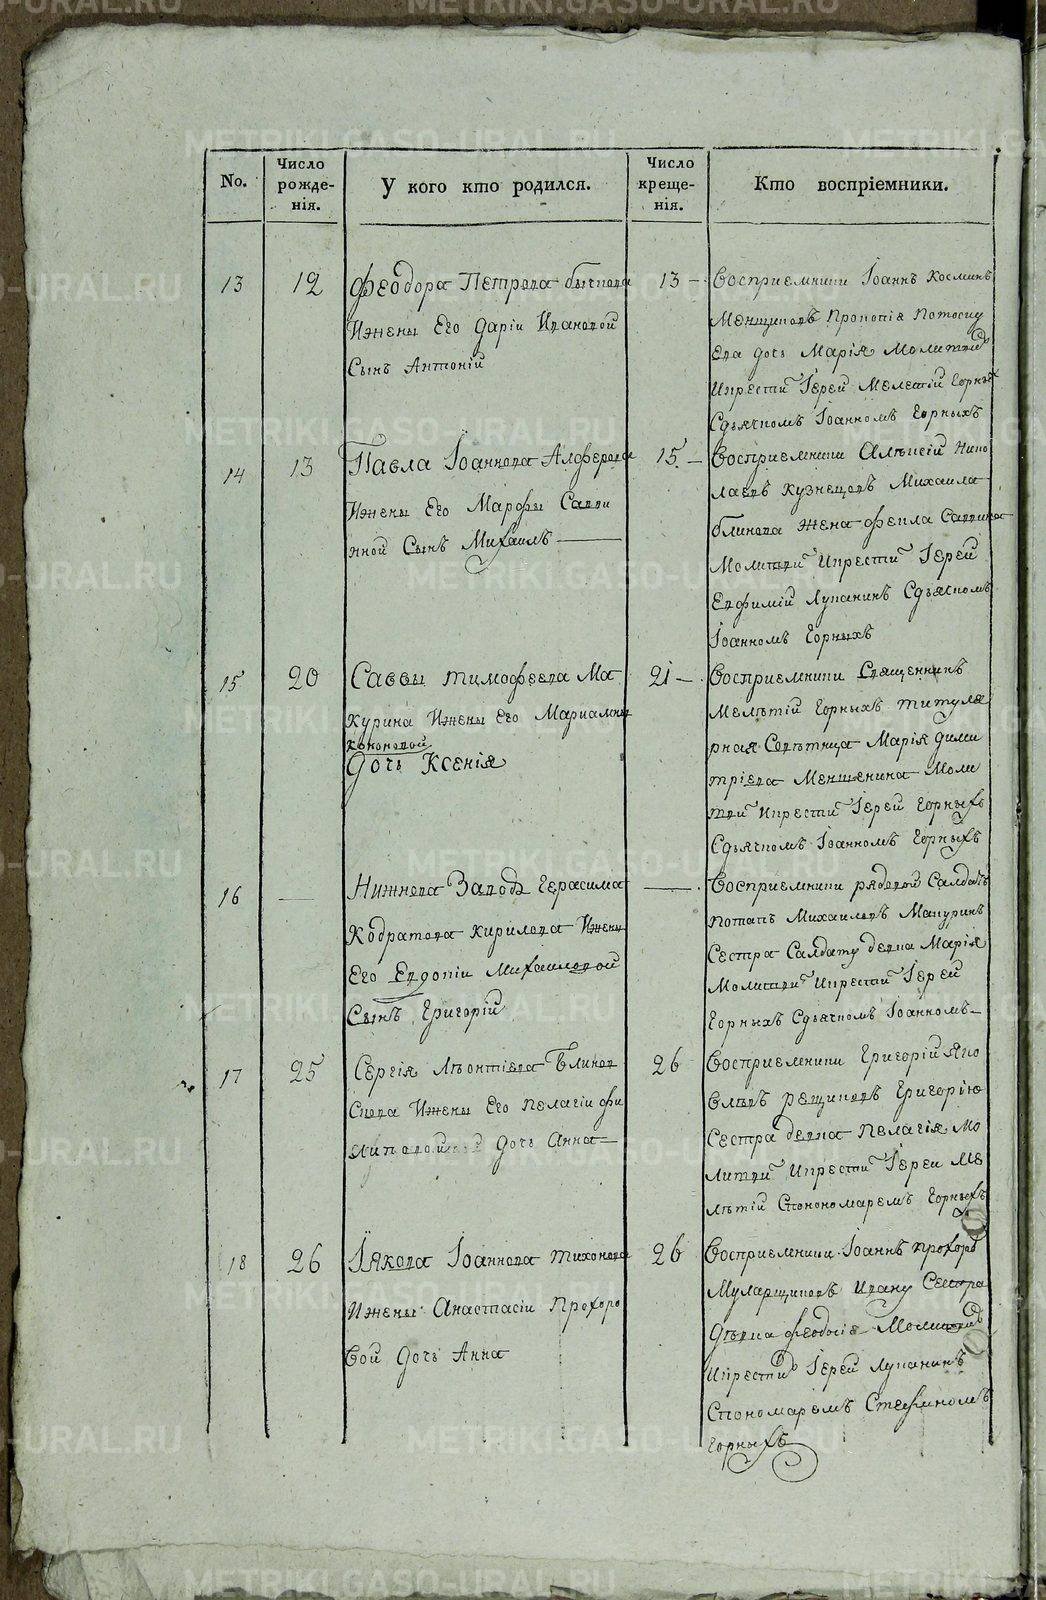 No.
Число рожде-нія.
У кого кто родился.
Число креще-нія.
Кто воспріемники.
13
12
Феодора Петрова
Ижены Его Даріи Ивановой
Сынъ Антоній
13 –
Восприемники Іоаннъ Косминъ
Менщиковъ
Ева дочь Марія Молитвѣ
Икрести Іерей Мелетій Горныхъ
Сдьячкомъ Іоанномъ Горныхъ
14
13
Павла Іоаннова Алферова
Ижены Его Марфы Савви
нной Сынъ Михаилъ
15. –
Восприемники Алѣксій Нико
лаевъ Кузнецовъ Михаила
блинова Жена Фекла Саввина
Молитви Икрести Іерей
Евфимій Лупанинъ Сдьякомъ
Іоанномъ Горныхъ
15
20
Саввы тимофеева Ма
курина Ижены Его Марианны
кононовой
дочь Ксенія
21 –
Восприемники Священникъ
Мелѣтій Горныхъ титуля
рная Совѣтница Марія дими
тріева Меншенина Моли
тви Икрести Іерей Горныхъ
Сдьячкомъ Іоанномъ Горныхъ
16
—
Нижнева Завода Герасима
Кодратова Кирилова Ижены
Его Евдокіи Михаиловой
Сынъ Григорій
—
Восприемники рядовой Салдатъ
Потапъ Михаиловъ Макуринъ
Сестра Салдату девка Марія
Молитви Икрести Іерей
Горныхъ Сдьячкомъ Іоанномъ –
17
25
Сергія Лѣонтіева Блинов
скова Ижены Его Пелагіи фи
липовой дочь Анна –
26
Восприемники Григорій Яко
влѣвъ рещиковъ Григорію
Сестра девка Пелагія Мо
литви Икрести Іереи Ме
лѣтій Спонономаремъ Горныхъ
18
26
Іякова Іоаннова тихонова
Ижены Анастасіи Прохоро
вой дочь Анна
26
Восприемники Іоаннъ Прохоро
Муларщиковъ Ивану Сестра
Дѣвка феодосіе Молитви
Икрести Іерей Лупанинъ
Спономаремъ Стефаномъ
Горныхъ